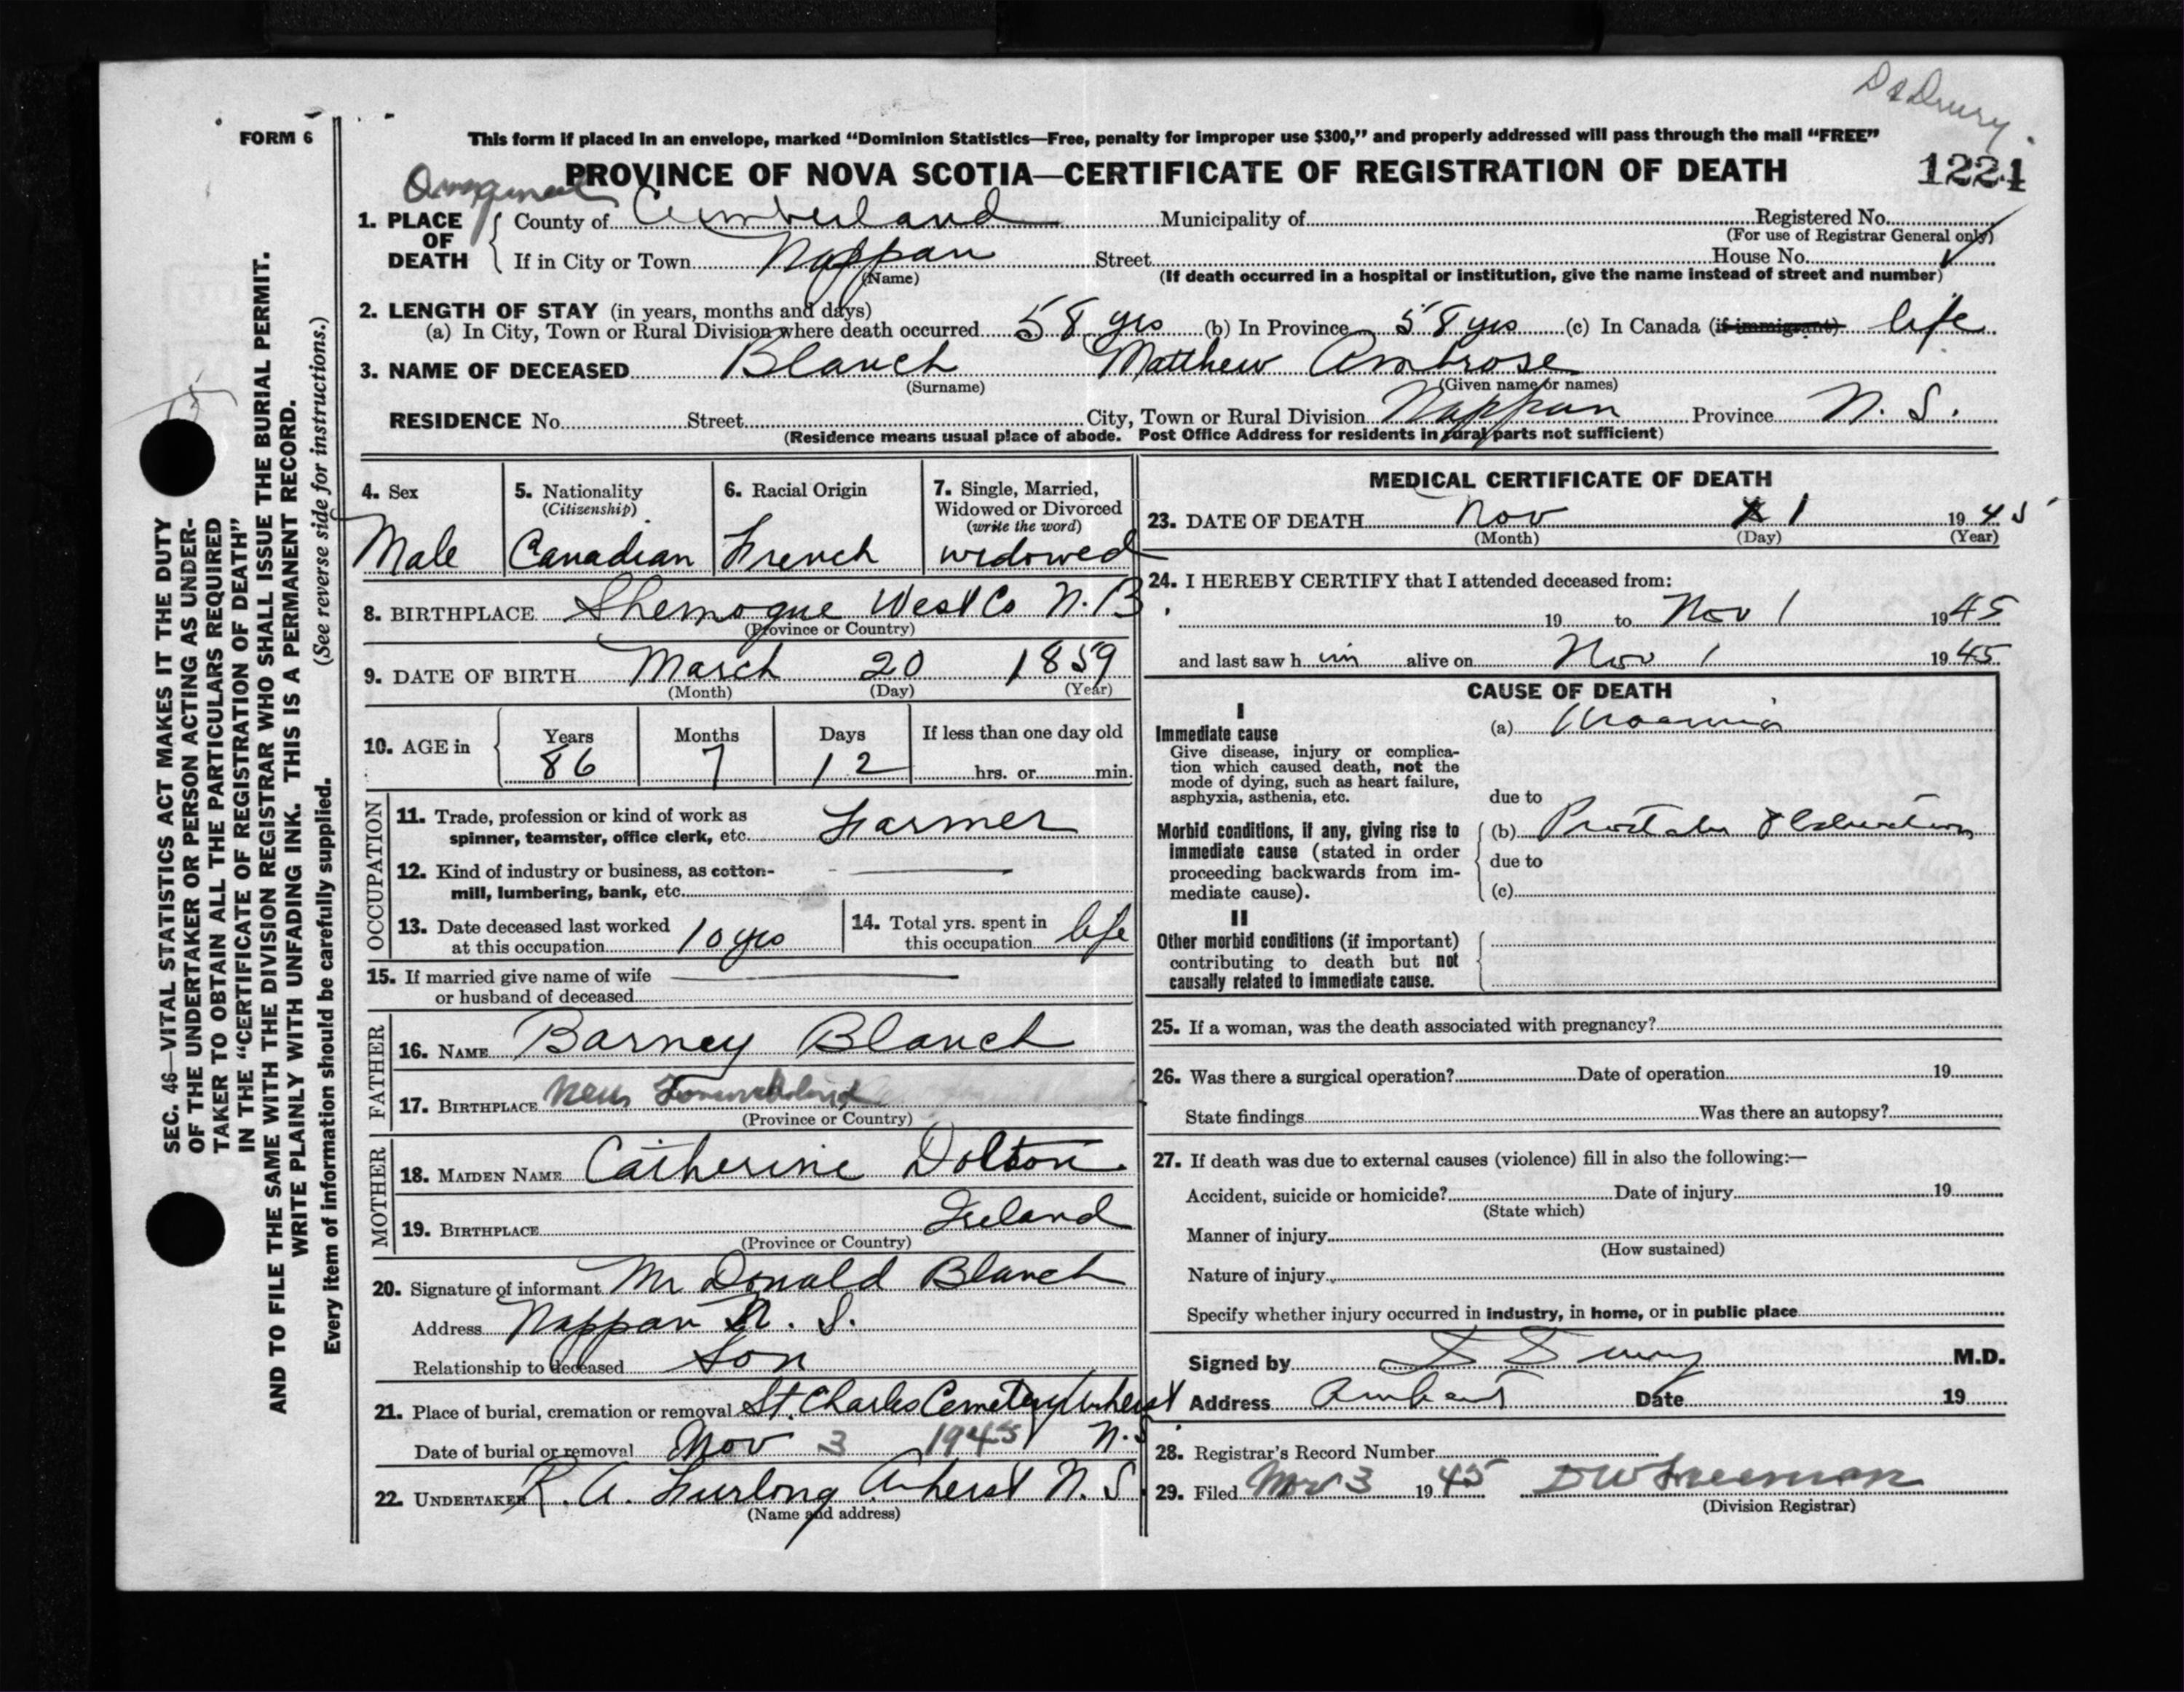 Dr Drury
FORM 6
This form if placed in an envelope, marked “Dominion Statistics—Free, penalty for improper use $300,” and properly addressed will pass through the mail “FREE”
PROVINCE OF NOVA SCOTIA—CERTIFICATE OF REGISTRATION OF DEATH
1221
1. PLACE OF DEATH
County of Cumberland Municipality of Registered No.
(For use of Registrar General only)
If in City or Town Nappan Street House No.
(Name) (If death occurred in a hospital or institution, give the name instead of street and number)
2. LENGTH OF STAY (in years, months and days)
(a) In City, Town or Rural Division where death occurred 58 yrs (b) In Province 58 yrs (c) In Canada (if immigrant) life
3. NAME OF DECEASED Blanch Matthew Ambrose
(Surname) (Given name or names)
RESIDENCE No. Street City, Town or Rural Division Nappan Province N. S.
(Residence means usual place of abode. Post Office Address for residents in rural parts not sufficient)
4. Sex
Male
5. Nationality
(Citizenship)
Canadian
6. Racial Origin
French
7. Single, Married,
Widowed or Divorced
(write the word)
widowed
8. BIRTHPLACE Shemogue West Co N.B.
(Province or Country)
9. DATE OF BIRTH March 20 1859
(Month) (Day) (Year)
10. AGE in
Years Months Days If less than one day old
86 7 12 hrs. or min.
OCCUPATION
11. Trade, profession or kind of work as
spinner, teamster, office clerk, etc. Farmer
12. Kind of industry or business, as cotton-
mill, lumbering, bank, etc.
13. Date deceased last worked
at this occupation 10 yrs
14. Total yrs. spent in
this occupation life
15. If married give name of wife
or husband of deceased
FATHER
16. NAME Barney Blanch
17. BIRTHPLACE New Foundland
(Province or Country)
MOTHER
18. MAIDEN NAME Catherine Dolton
19. BIRTHPLACE Ireland
(Province or Country)
20. Signature of informant Mr Donald Blanch
Address Nappan N. S.
Relationship to deceased Son
21. Place of burial, cremation or removal St. Charles Cemetery Amherst
Date of burial or removal Nov 3 1945 N.S
22. UNDERTAKER R. A. Furlong Amherst N. S.
(Name and address)
MEDICAL CERTIFICATE OF DEATH
23. DATE OF DEATH Nov 1 1945
(Month) (Day) (Year)
24. I HEREBY CERTIFY that I attended deceased from:
19 to Nov 1 1945
and last saw h im alive on Nov 1 1945
CAUSE OF DEATH
I
Immediate cause
Give disease, injury or complica-
tion which caused death, not the
mode of dying, such as heart failure,
asphyxia, asthenia, etc.
(a) Uraemia
due to
Morbid conditions, if any, giving rise to
immediate cause (stated in order
proceeding backwards from im-
mediate cause).
(b) Prostatic Obstruction
due to
(c)
II
Other morbid conditions (if important)
contributing to death but not
causally related to immediate cause.
25. If a woman, was the death associated with pregnancy?
26. Was there a surgical operation? Date of operation 19
State findings Was there an autopsy?
27. If death was due to external causes (violence) fill in also the following:—
Accident, suicide or homicide? Date of injury 19
(State which)
Manner of injury
(How sustained)
Nature of injury
Specify whether injury occurred in industry, in home, or in public place
Signed by D Drury M.D.
Address Amherst Date 19
28. Registrar's Record Number
29. Filed Nov 3 1945 DW Freeman
(Division Registrar)
SEC. 46—VITAL STATISTICS ACT MAKES IT THE DUTY
OF THE UNDERTAKER OR PERSON ACTING AS UNDER-
TAKER TO OBTAIN ALL THE PARTICULARS REQUIRED
IN THE “CERTIFICATE OF REGISTRATION OF DEATH”
AND TO FILE THE SAME WITH THE DIVISION REGISTRAR WHO SHALL ISSUE THE BURIAL PERMIT.
WRITE PLAINLY WITH UNFADING INK. THIS IS A PERMANENT RECORD.
Every item of information should be carefully supplied. (See reverse side for instructions.)